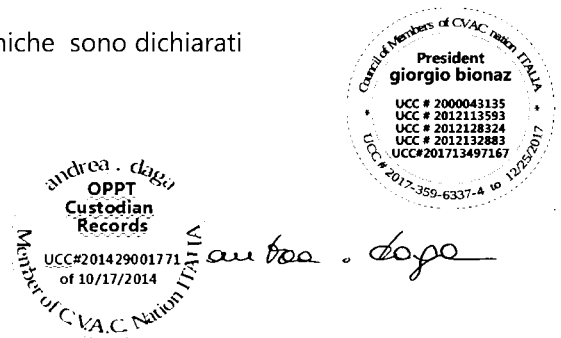 niche sono dichiarati
Council of Members of CVAC nation ITALIA
President
giorgio bionaz
UCC # 2000043135
UCC # 2012113593
UCC # 2012128324
UCC # 2012132883
UCC#201713497167
* UCC# 2017-359-6337-4 to 12/25/2017 *
andrea . daga
OPPT
Custodian
Records
UCC#201429001771
of 10/17/2014
Member of C.V.A.C. Nation ITALIA
. daga